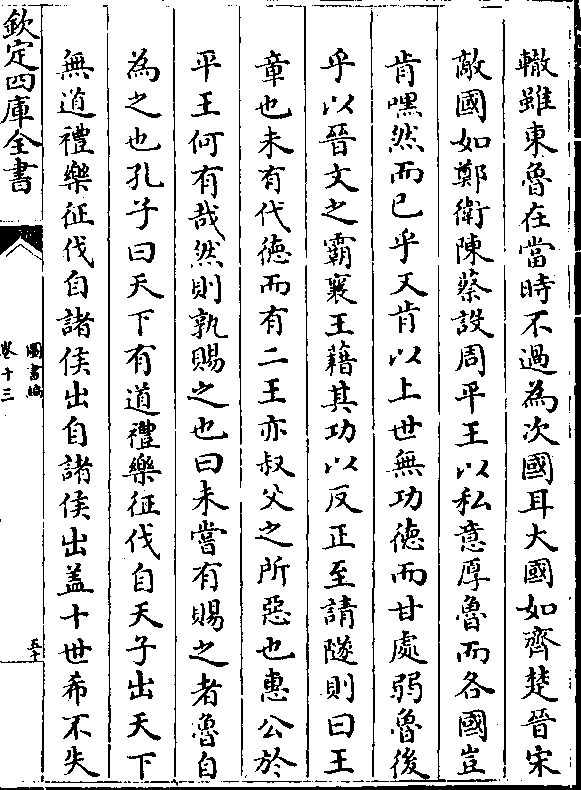 轍雖東魯在當時不過為次國耳大國如齊楚晉宋
敵國如鄭衛陳蔡設周平王以私意厚魯而各國豈
肯嘿然而已乎又肯以上世無功德而甘處弱魯後
乎以晉文之霸襄王藉其功以反正至請隧則曰王
章也未有代德而有二王亦叔父之所惡也惠公於
平王何有哉然則孰賜之也曰未嘗有賜之者魯自
為之也孔子曰天下有道禮樂征伐自天子出天下
無道禮樂征伐自諸侯出自諸侯出盖十世希不失
欽定四庫全書
圖書編
卷十三
五十